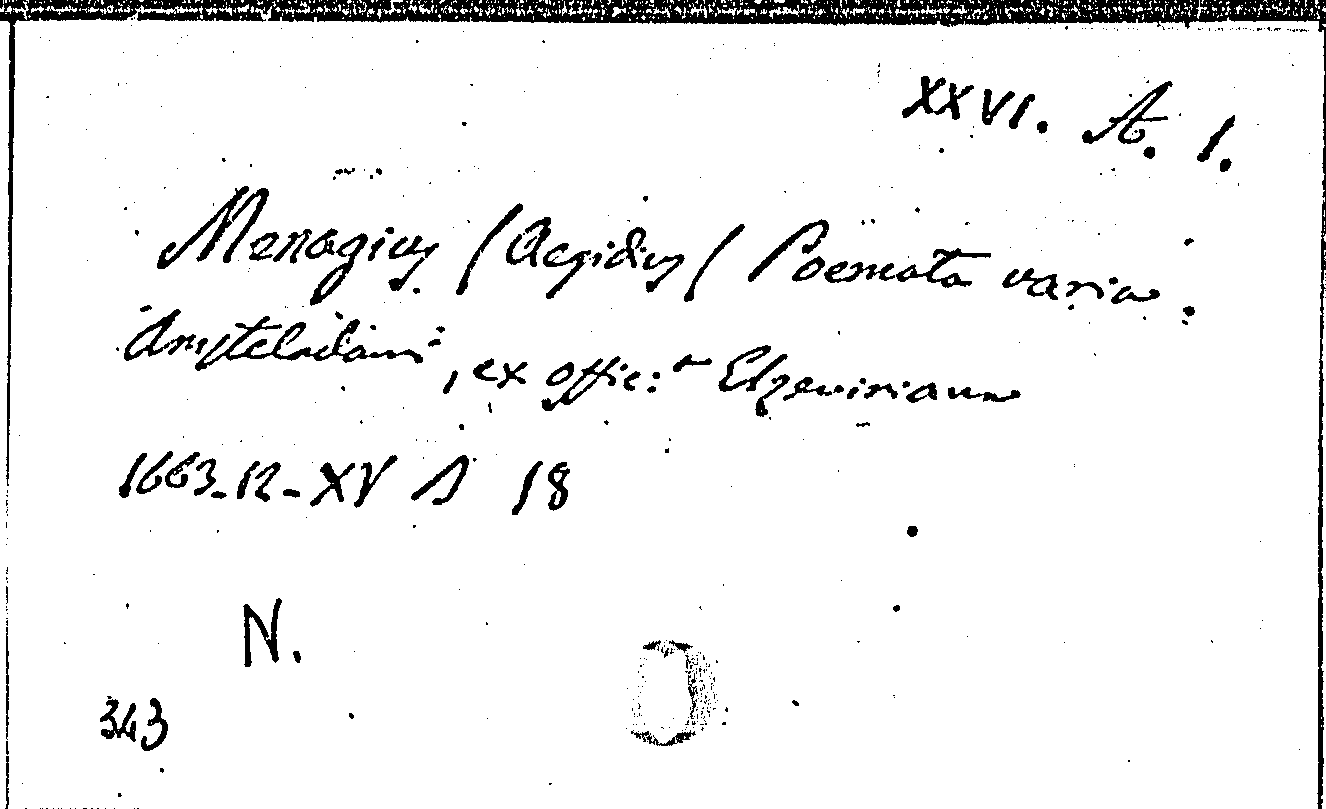 XXVI. A. 1.
Menagius (Aegidius) Poemata varia.
Amstelodami, ex offic:a Elzeviriana
1663-12-XV 18
N.
343